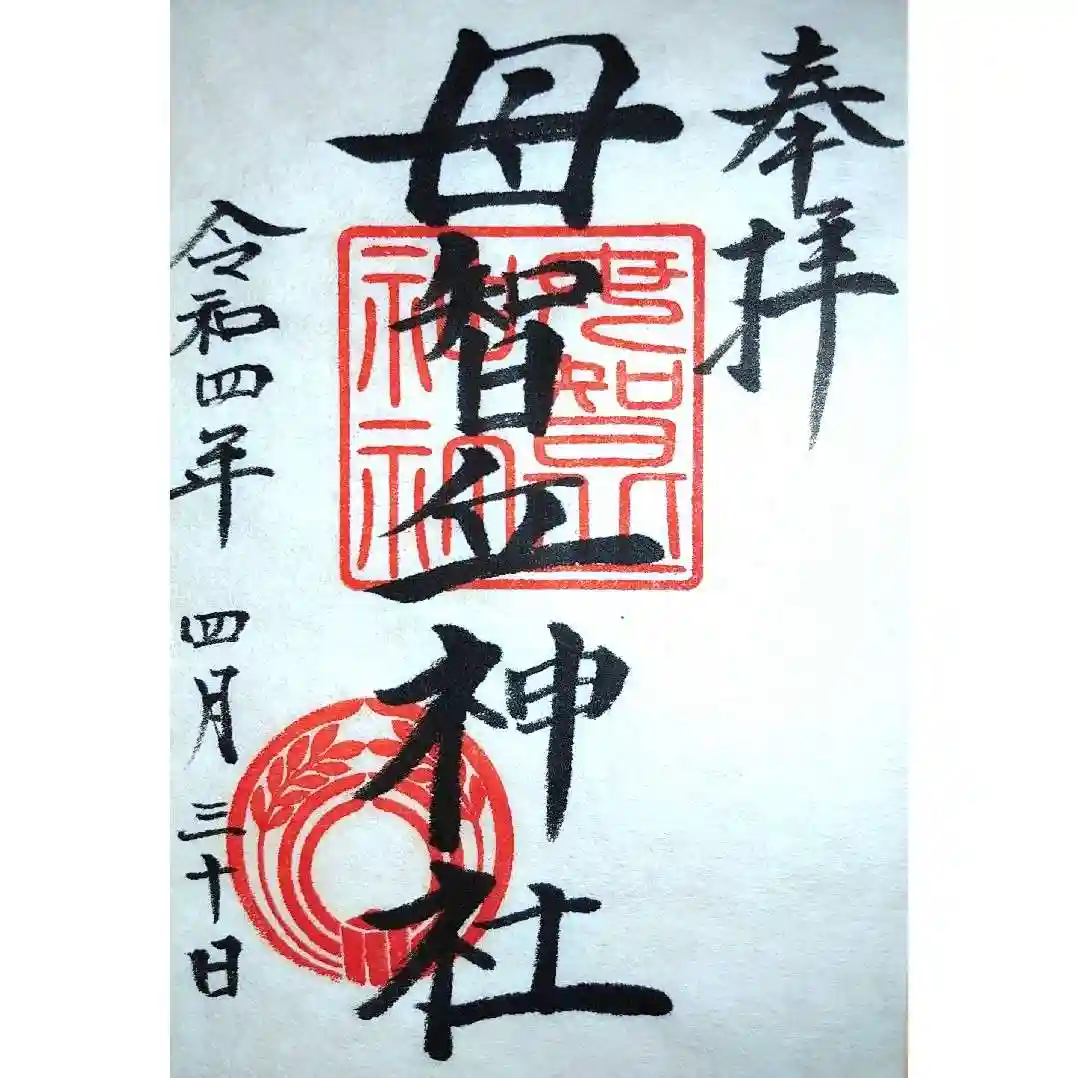 奉拝
母智丘神社
母智丘
神社
令和四年 四月 三十日